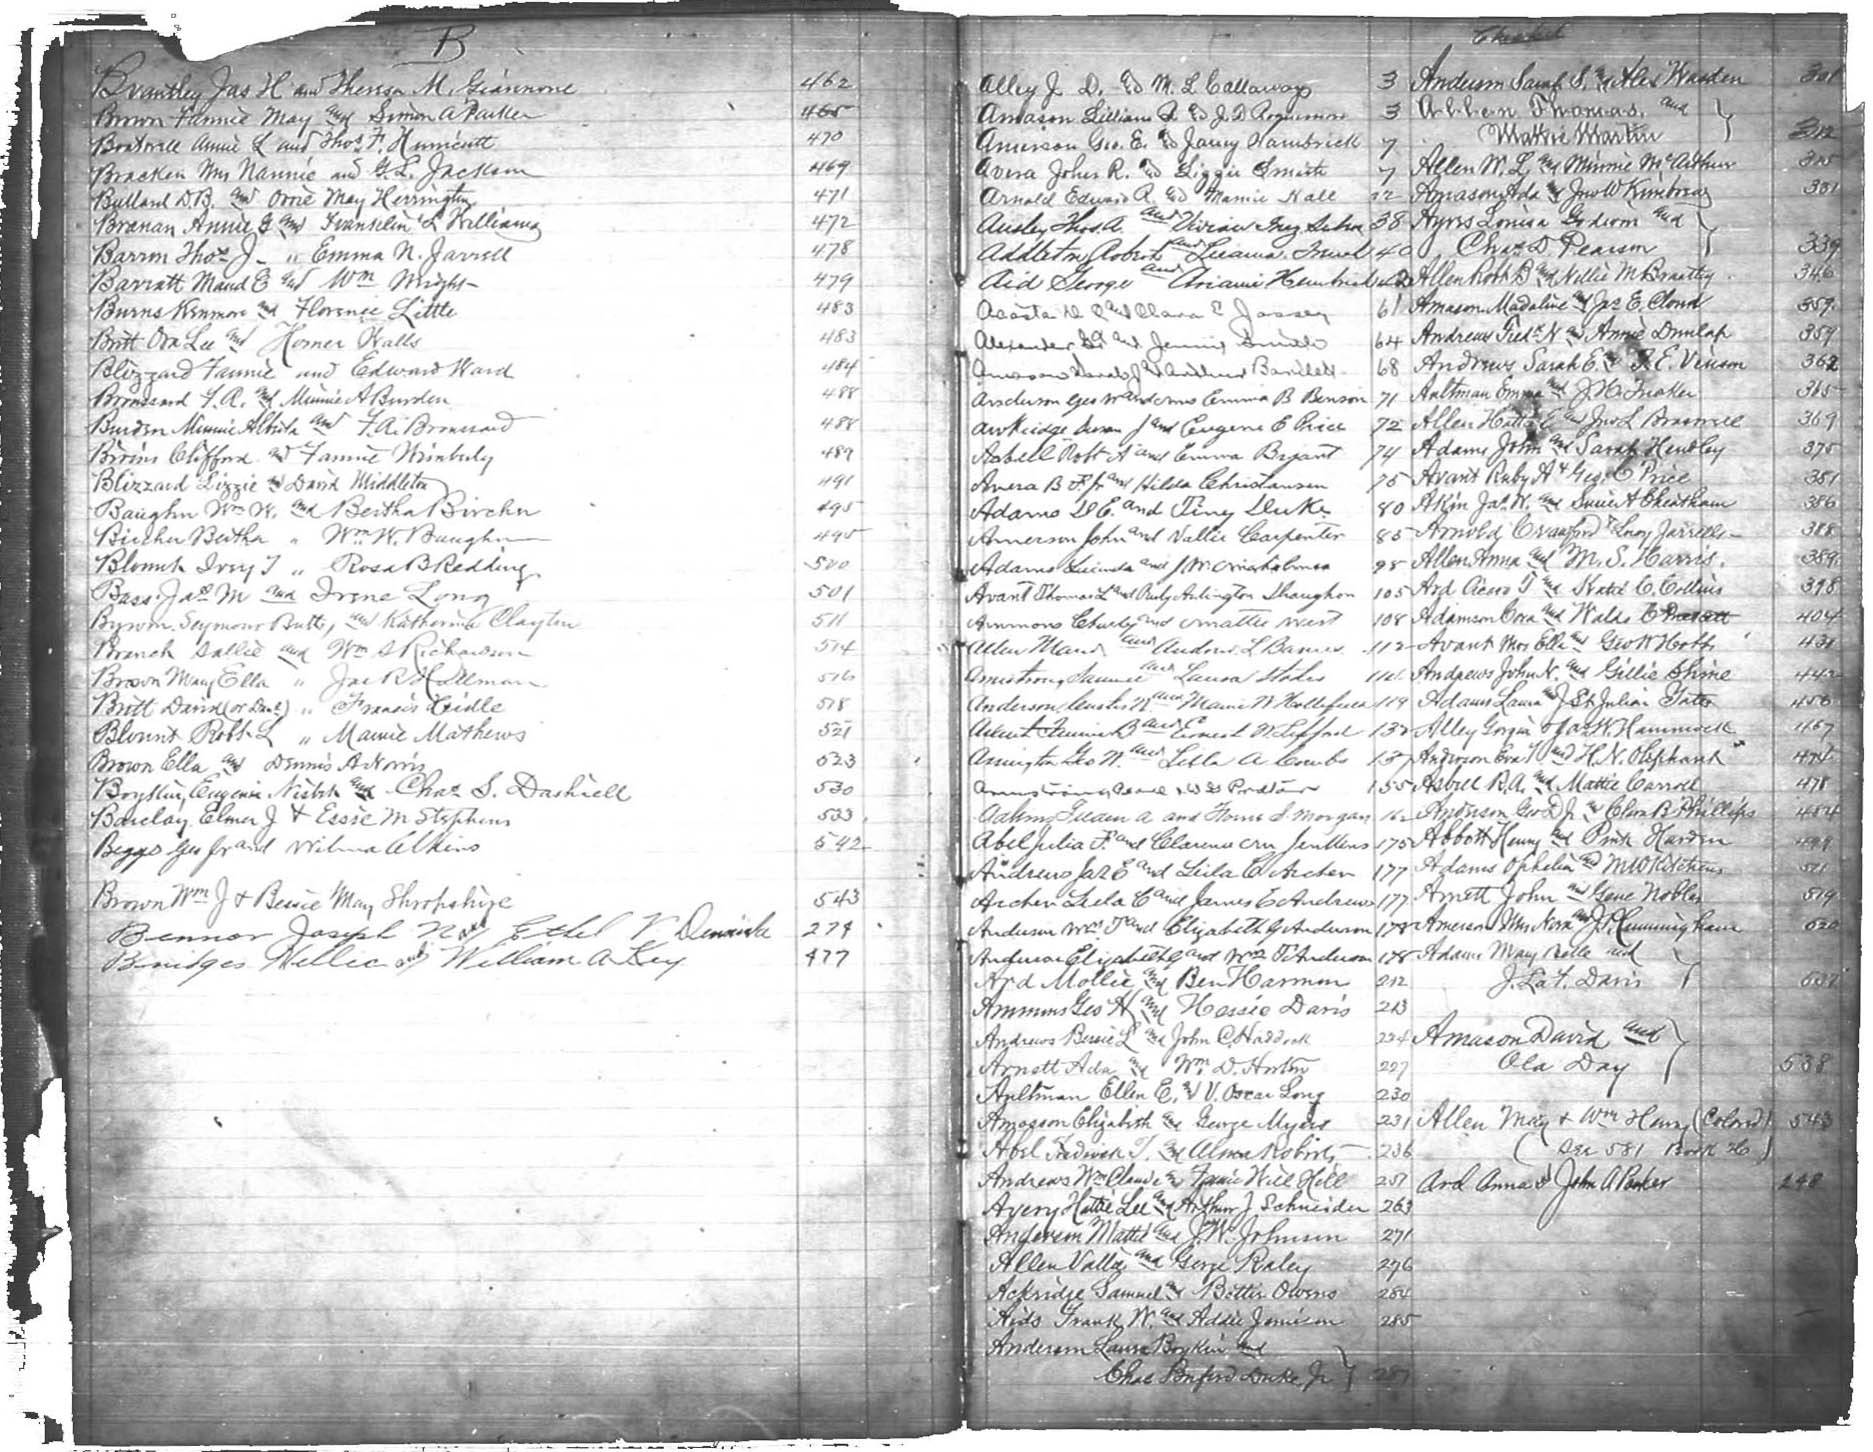 B
Brantley Jas H and Theresa M. Giannone 462
Brown Fannie May and Simon A Parker 465
Boatwell Annie L and Thos F. Hunicutt 470
Bracken Mrs Nannie and G. L. Jackson 469
Bullard D. B. and Ovvie May Herrington 471
Branan Annie G and Franklin L Williams 472
Barron Thos J. " Emma N. Jarrell 478
Barratt Maud E and Wm Wright 479
Burns Kenmore and Florence Little 483
Britt Ora Lee and Homer Walls 483
Blizzard Fannie and Edward Ward 484
Broussard F. A. and Minnie A Burden 488
Burden Minnie Alberta and F. A. Broussard 488
Brown Clifford and Fannie Wimberly 489
Blizzard Lizzie and David Middleton 491
Baughn Wm W. and Beitha Bircher 495
Bircher Beitha " Wm W. Baughn 495
Blount Ivey T " Rosa B Redding 500
Bass Jas M and Irene Long 501
Byrom Seymour Butts, and Katherine Clayton 511
Branch Sallie and Wm S Richardson 514
Brown Mary Ella " Jack R Hallman 516
Britt David (or Danl) " Francis Lidle 518
Blount Robt L " Mamie Mathews 521
Brown Ella and Dennis A Norris 523
Boykin, Eugenia Nisbet and Chas S. Dashiell 530
Barclay, Elmer J & Essie M Stephens 533
Beggs Geo Jr and Wilma Elkins 542
Brown Wm J & Bessie May Shropshire 543
Bennor Joseph N and Ethel V. 274
Bridges Nellie and William A Key 477
Alley J. D. and M. L Callaway 3
Amason Lillian R and J. D 3
Amerson Geo. E. and Janey Hambrick 7
Avera John R. and Lizzie Smith 7
Arnold Edward R. and Mamie Hall 22
Ausley Thos. A. and Vivian Inez 38
Addleton, Robert and 40
Aid George and Ariamie Hembrick
Acosta and Clara E Jossey 61
Alexander and Jennie Smith 64
Amason and Bartlett 68
Anderson Geo W and Mrs Emma B Benson 71
Awkridge Susan J and Eugene E Price 72
Asbell Robt A and Emma Bryant 74
Avera B F. Jr and Hilda Christiansen 75
Adams D E. and Tiny Duke 80
Amerson John and Vallie Carpenter 85
Adams Lucinda and J. W. Chisholm 98
Avant Thomas L and Ruby Arlington Shaughn 105
Ammons Charley and Mattie West 108
Allen Maud and Andrew L Barnes 112
Armstrong, Sammie and Laura Stokes 114
Anderson, W. and Mamie W Hollifield 119
and Ernest M Lifford 132
Arrington Geo W. and Lilla A Combs 137
Armstrong 155
Susan A and Homer S. Morgan 162
Abel Julia F. and Clarence Jenkins 175
Andrews Jas E and Leila C Archer 177
Archer Leila C and James E Andrews 177
Anderson Wm T and Elizabeth G Anderson 178
Anderson Elizabeth G and Wm T Anderson 178
Ard Mollie and Ben Harmon 212
Ammons Geo H and Hessie Davis 213
Andrews Bessie L and John C. Haddock 224
Arnett Ada and Wm D. Horton 227
Aultman Ellen E. and V. Oscar Long 230
Amosson Elizabeth and George Myers 231
Abel Frederick T. and Alma Roberts 236
Andrews Wm Claude and Fannie Will Hill 257
Avery Hattie Lee and Arthur J Schneider 263
Anderson Mattie and J. W. Johnson 271
Allen Vallie and George Raley 276
Ackridge Samuel and Bettie Owens 284
Aids Frank W. and Addie Jamison 285
Anderson Laura Boykin and
Chas Buford Duke Jr } 287
Checked
Anderson Sarah S. and Alex Warden 301
Allen Thomas. and }
Mattie Martin 312
Allen W. L. and Minnie McArthur 315
Amason Ada and Jno W Kimbrew 331
Ayres Louisa Godwin and }
Chas D Pearson 339
Allen Robt B and Nellie M Brantley 346
Amason Madaline and Jas E. Cloud 359
Andrews Fredk N and Annie Dunlap 359
Andrews, Sarah E. and R. E. Vinson 362
Aultman Emma and J. H. Fricker 365
Allen Hattie E and Jno L Braswell 369
Adams John and Sarah Hendley 375
Avant Ruby A & Geo. C Price 351
Akin Jas. W. and Susie A Cheatham 386
Arnold Crawford & Jarrell 388
Allen Anna and M. S. Harris 389
Ard Cicero T and Katie C. Collins 398
Adamson Cora and Waldo C 404
Avant Mrs Ella and Geo W Hobbs 431
Andrews John N. and Gillie Shine 442
Adams Laura and J St Julian Yates 456
Alley Georgia & Jas W. Hammock 467
Anderson Eva T and H. N. Oliphant 474
Asbell R. A. and Mattie Carroll 478
Anderson Geo D Jr and Clara B Phillips 484
Abbott Henry and Pink Hardin 499
Adams Ophelia and M W Kitchens 511
Arnett John and Gene Nobles 519
Amerson Mrs Nora and J. P. Cunningham 520
Adams May Belle and }
J. LaF. Davis 537
Amason David and }
Ola Day 538
Allen May & Wm Henry (Colored) 543
(See 581 Book H)
Ard Anna & John A Parker 248